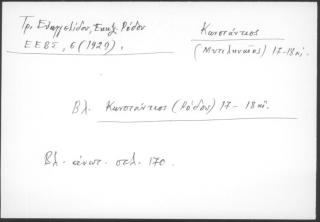 Τρ. Ευαγγελίδου, Εκκλ. Ρόδου
ΕΕΒΣ, 6 (1929).
Κωνστάντιος
(Μυτιληναῖος) 17-18 αἰ.
Βλ. Κωνστάντιος (Ρόδου) 17-18 αἰ.
Βλ. ἀνωτ. σελ. 170.